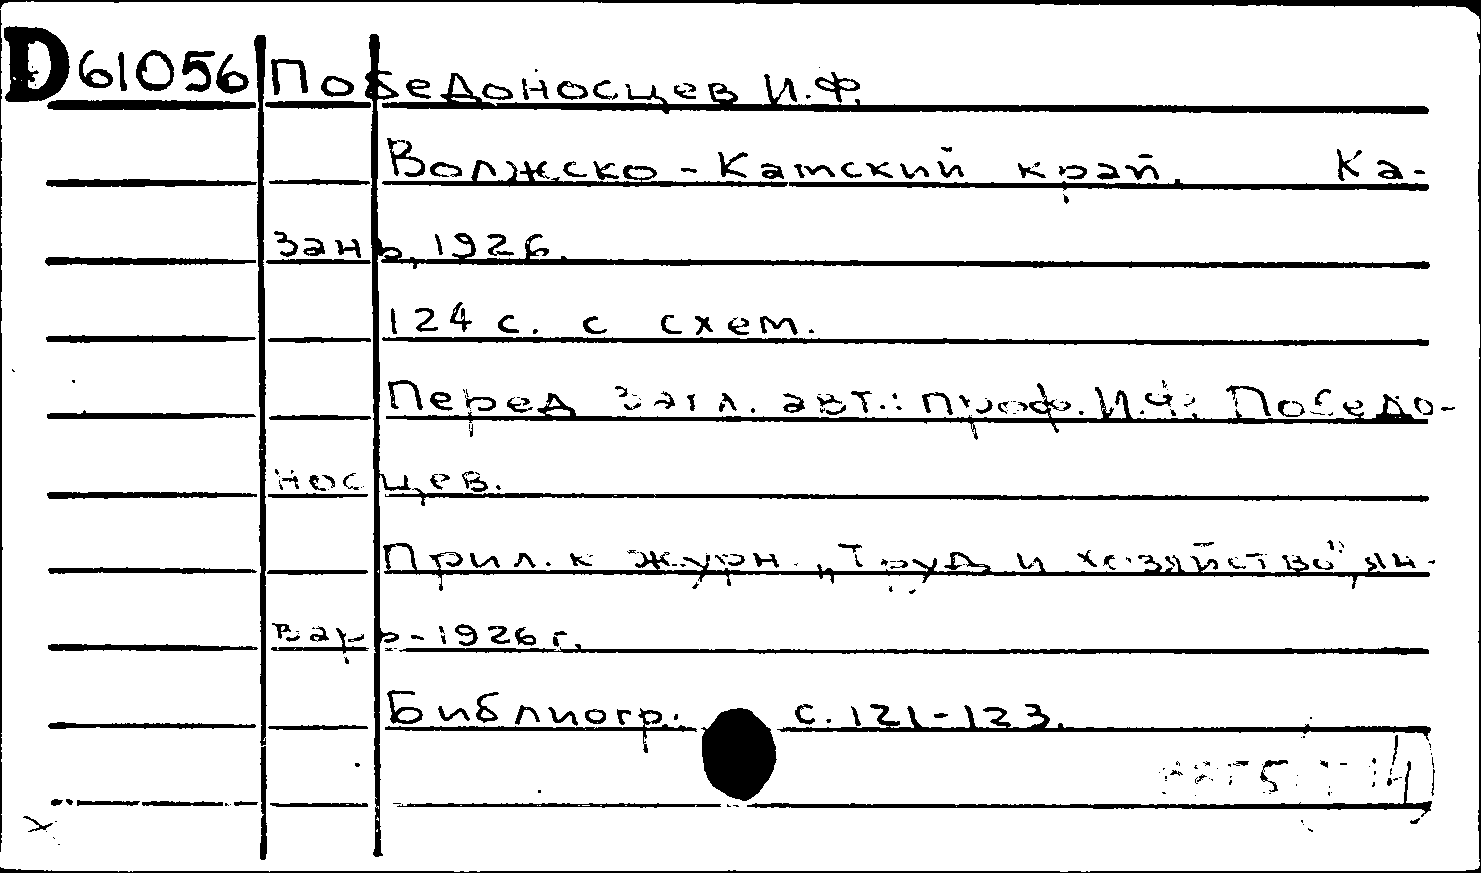 D61056 Победоносцев И.Ф.
Волжско-Камский край. Ка-
зань, 1926.
124 с. с схем.
Перед загл. авт.: проф. И.Ф. Победо-
носцев.
Прил. к журн. „Труд и хозяйство", ян-
варь-1926 г.
Библиогр.: с. 121-123.